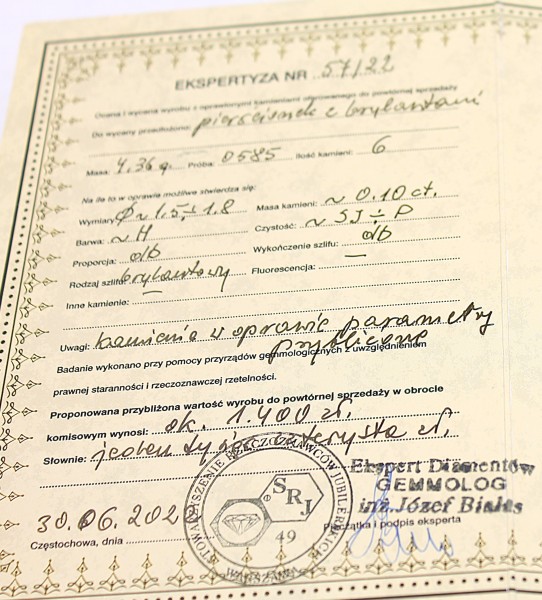 EKSPERTYZA NR 57/22
Ocena i wycena wyrobu z oprawionymi kamieniami oferowanego do powtórnej sprzedaży
Do wyceny przedłożono: pierścionek z brylantami
Masa: 4.36 g. Próba: 0585 Ilość kamieni: 6
Na ile to w oprawie możliwe stwierdza się:
Wymiary: Ø ~ 1.5 ÷ 1.8 Masa kamieni: ~ 0.10 ct.
Barwa: ~ H Czystość: ~ SJ ÷ P
Proporcja: db Wykończenie szlifu: db
Rodzaj szlifu: brylantowy Fluorescencja: —
Inne kamienie: —
Uwagi: kamienie w oprawie parametry
przybliżone
Badanie wykonano przy pomocy przyrządów gemmologicznych z uwzględnieniem
prawnej staranności i rzeczoznawczej rzetelności.
Proponowana przybliżona wartość wyrobu do powtórnej sprzedaży w obrocie
komisowym wynosi: ok. 1.400 zł.
Słownie: jeden tysiąc czterysta zł.
STOWARZYSZENIE RZECZOZNAWCÓW JUBILERSKICH
SRJ
49
WARSZAWA
Ekspert Diamentów
GEMMOLOG
inż. Józef Białas
Pieczątka i podpis eksperta
30.06.2022
Częstochowa, dnia